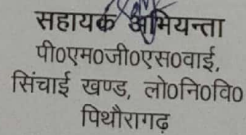 सहायक अभियन्ता
पी0एम0जी0एस0वाई,
सिंचाई खण्ड, लो0नि0वि0
पिथौरागढ़